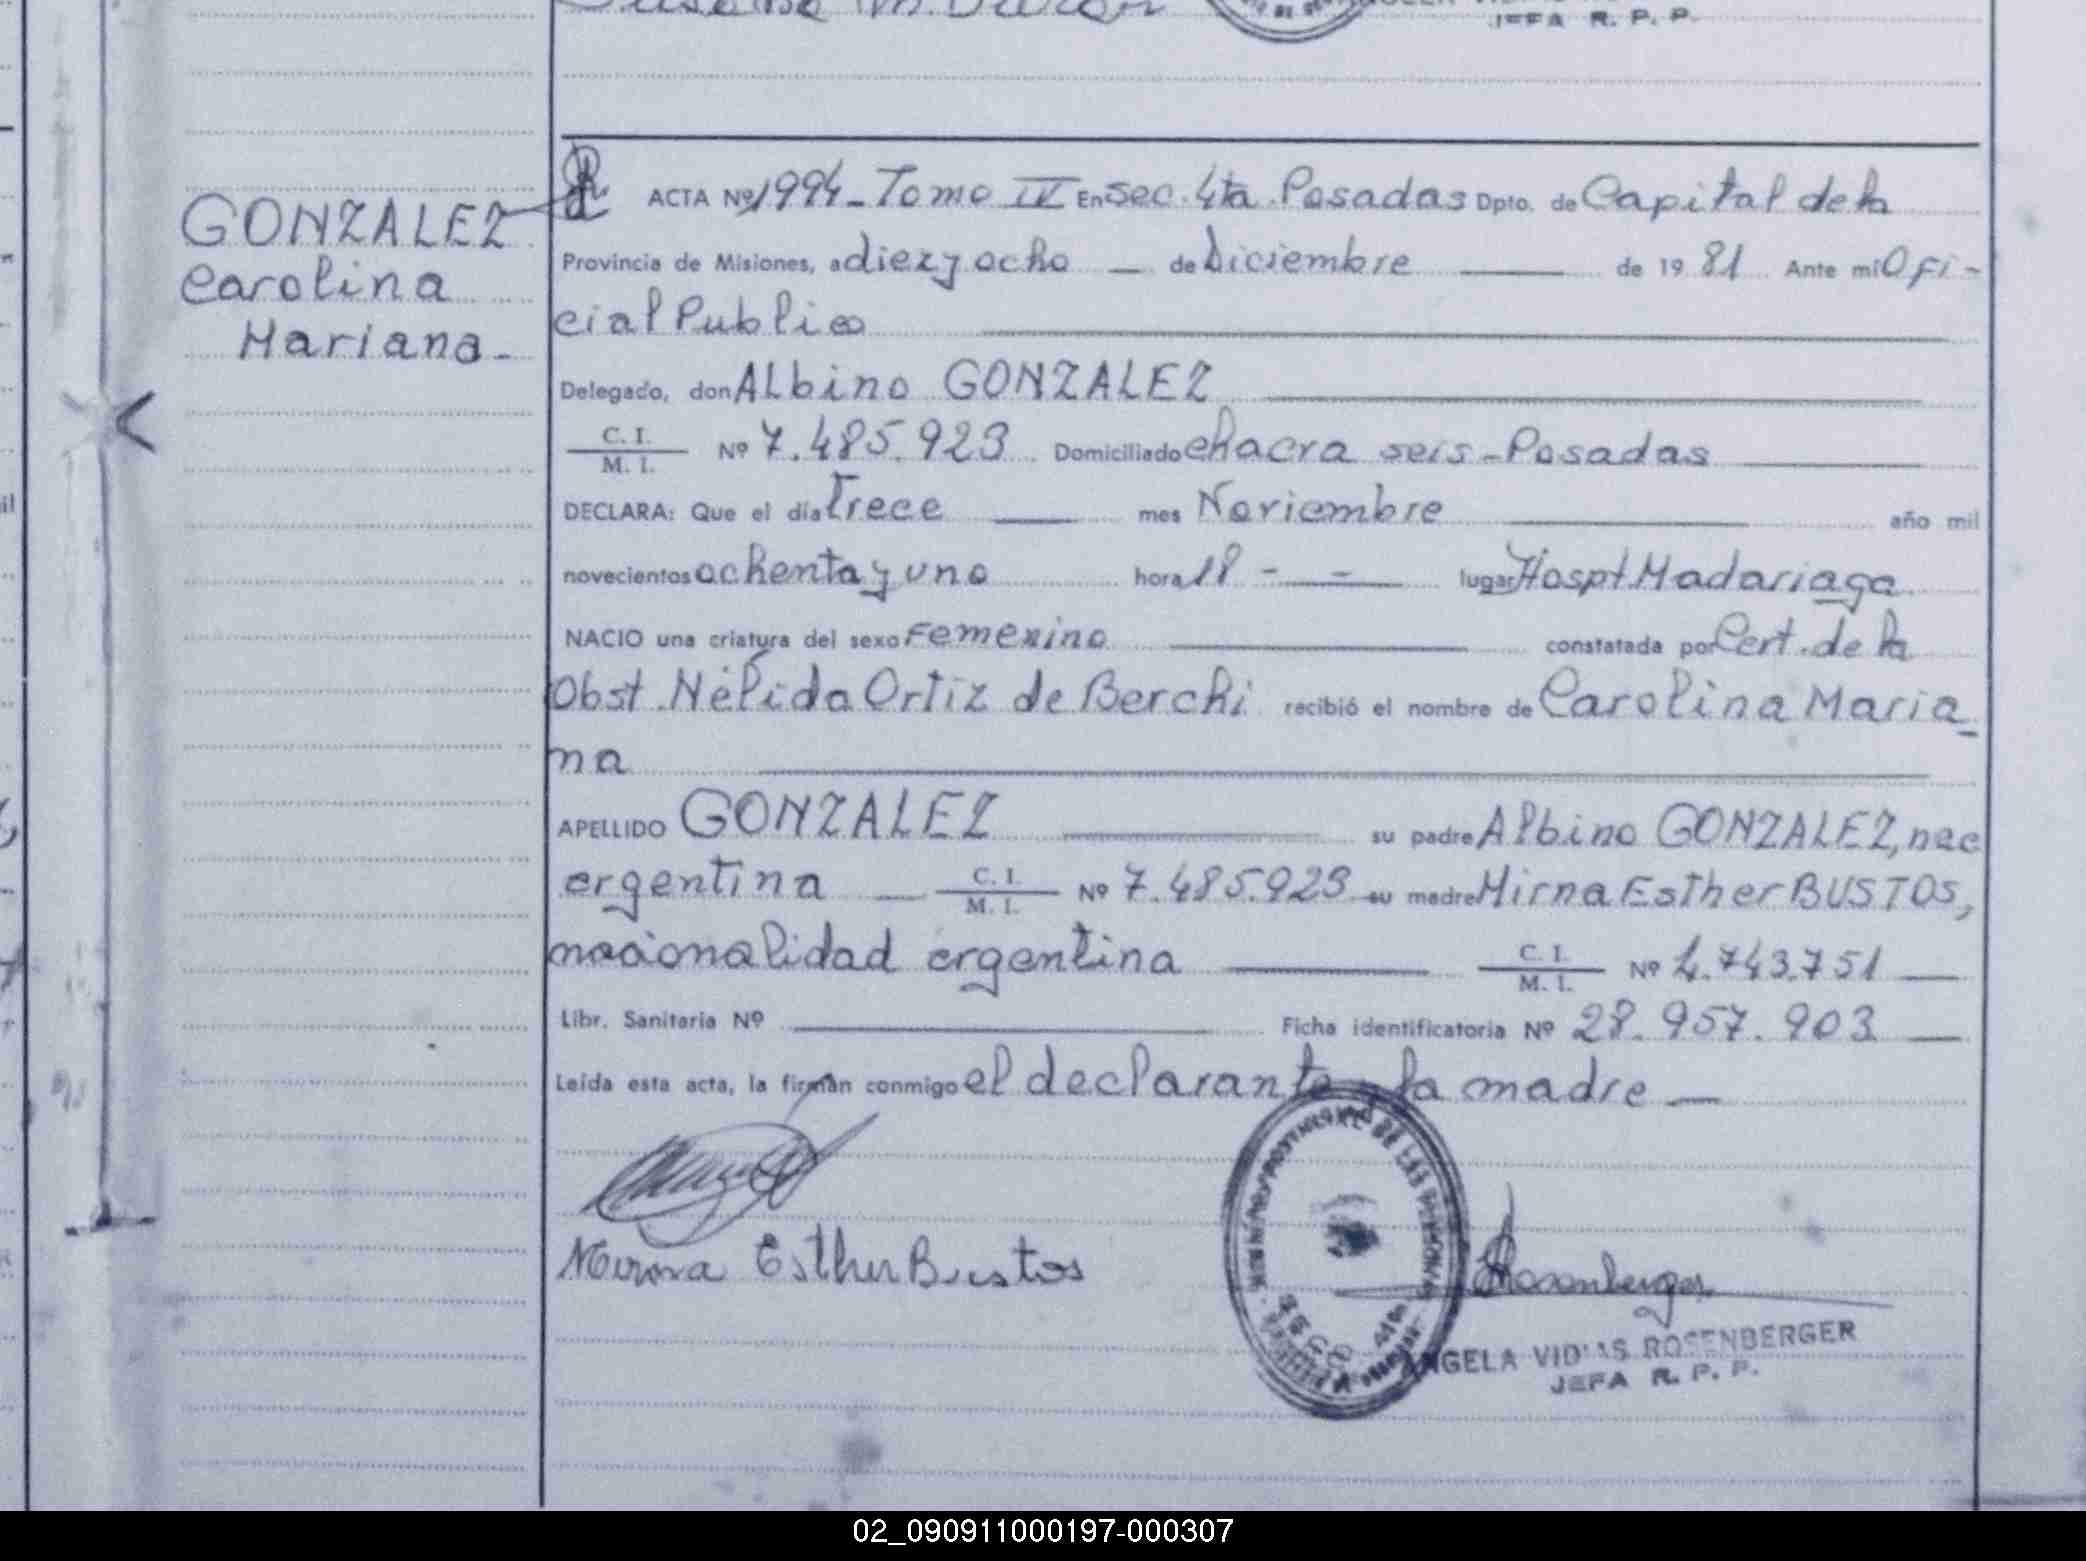 JEFA R. P. P.
GONZALEZ
Carolina
Mariana-
ACTA Nº 1994- Tomo IV En Sec. 4ta. Posadas Dpto. de Capital de la
Provincia de Misiones, a diez y ocho — de Diciembre — de 19 81 Ante mi Ofi-
cial Publico
Delegado, don ALbino GONZALEZ
C. I.
M. I. Nº 7.485.923 Domiciliado chacra seis-Posadas
DECLARA: Que el día Trece — mes Noviembre — año mil
novecientos ochenta y uno hora 18 - - lugar Hospt. Madariaga
NACIO una criatura del sexo Femenino — constatada por Cert. de la
Obst. Nélida Ortiz de Berchi recibió el nombre de Carolina Maria
na
APELLIDO GONZALEZ — su padre Albino GONZALEZ, nac
argentina — C. I.
M. I. Nº 7.485.923 su madre Mirna Esther BUSTOS,
nacionalidad argentina — C. I.
M. I. Nº 4.743.751 —
Libr. Sanitaria Nº — Ficha identificatoria Nº 28.957.903 —
Leída esta acta, la firman conmigo el declarante y la madre —
Mirna Esther Bustos
Rosenberger
ANGELA ROSENBERGER
JEFA R. P. P.
02_090911000197-000307